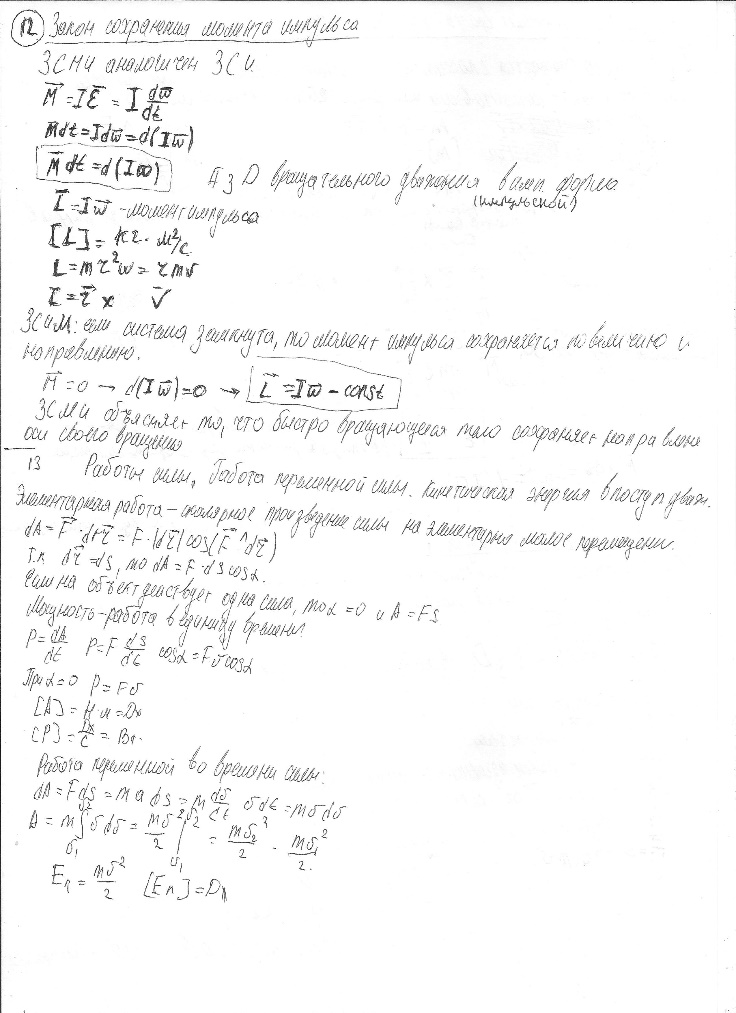 12 Закон сохранения момента импульса
ЗСМИ аналогичен ЗСИ
M⃗ = Iε⃗ = I dω⃗/dt
M⃗dt = Idω⃗ = d(Iω⃗)
M⃗dt = d(Iω⃗)
ДЗД вращательного движения в имп. форме
(импульсной)
L⃗ = Iω⃗ - момент импульса
[L] = кг · м²/с
L = mr²ω = rmv
L⃗ = r⃗ x V⃗
ЗСИМ: если система замкнута, то момент импульса сохраняется по величине и
направлению.
M⃗ = 0 → d(Iω⃗) = 0 → L⃗ = Iω⃗ - const
ЗСМИ объясняет то, что быстро вращающееся тело сохраняет направление
оси своего вращения
13 Работы силы, Работа переменной силы. Кинетическая энергия в поступ движ.
Элементарная работа – скалярное произведение силы на элементарная малое перемещени.
dA = F⃗ · dr⃗ = F · |dr⃗| cos(F⃗ ^ dr⃗)
Т.к. dr⃗ = ds, то dA = F · ds cosα.
Если на объект действует одна сила, то α = 0 и A = Fs
Мощность – работа в единицу времени:
P = dA/dt P = F ds/dt cosα = Fvcosα
При α = 0 P = Fv
[A] = Н·м = Дж
[P] = Дж/с = Вт.
Работа переменной во времени силы:
dA = Fds = m a ds = m dv/dt v dt = mvdv
A = m∫v₁v₂ v dv = mv²/2 |v₁v₂ = mv₂²/2 - mv₁²/2.
Eк = mv²/2 [Eк] = Дж